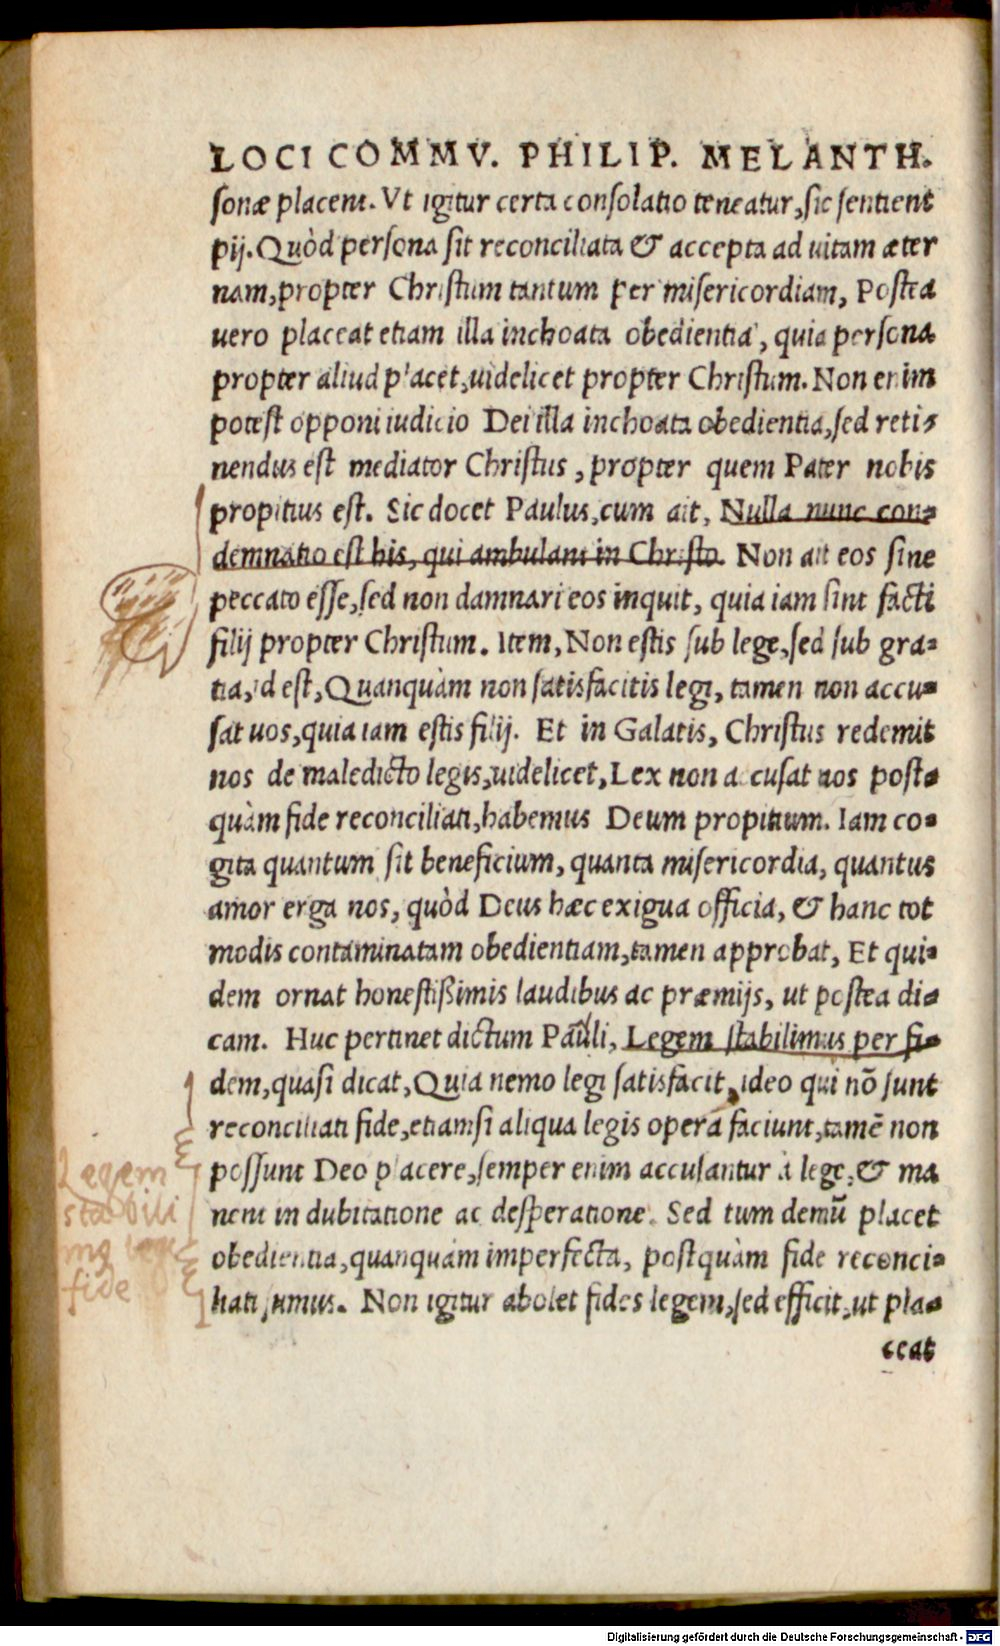 LOCI COMMV. PHILIP. MELANTH.
sonæ placent. Vt igitur certa consolatio teneatur, sic sentient
pij. Quòd persona sit reconciliata & accepta ad uitam æter
nam, propter Christum tantum per misericordiam, Postea
uero placeat etiam illa inchoata obedientia, quia persona
propter aliud placet, uidelicet propter Christum. Non enim
potest opponi iudicio Dei illa inchoata obedientia, sed reti-
nendus est mediator Christus, propter quem Pater nobis
propitius est. Sic docet Paulus, cum ait, Nulla nunc con-
demnatio est his, qui ambulant in Christo. Non ait eos sine
peccato esse, sed non damnari eos inquit, quia iam sint facti
filij propter Christum. Item, Non estis sub lege, sed sub gra-
tia, id est, Quanquàm non satisfacitis legi, tamen non accu-
sat uos, quia iam estis filij. Et in Galatis, Christus redemit
nos de maledicto legis, uidelicet, Lex non accusat nos post-
quàm fide reconciliati, habemus Deum propitium. Iam co-
gita quantum sit beneficium, quanta misericordia, quantus
amor erga nos, quòd Deus hæc exigua officia, & hanc tot
modis contaminatam obedientiam, tamen approbat, Et qui-
dem ornat honestißimis laudibus ac præmijs, ut postea di-
cam. Huc pertinet dictum Pauli, Legem stabilimus per fi-
dem, quasi dicat, Quia nemo legi satisfacit, ideo qui nō sunt
reconciliati fide, etiamsi aliqua legis opera faciunt, tamē non
possunt Deo placere, semper enim accusantur à lege, & ma
nent in dubitatione ac desperatione. Sed tum demū placet
obedientia, quanquàm imperfecta, postquàm fide reconci-
liati sumus. Non igitur abolet fides legem, sed efficit, ut pla-
ceat
Legem
stabili
fide
Digitalisierung gefördert durch die Deutsche Forschungsgemeinschaft - DFG